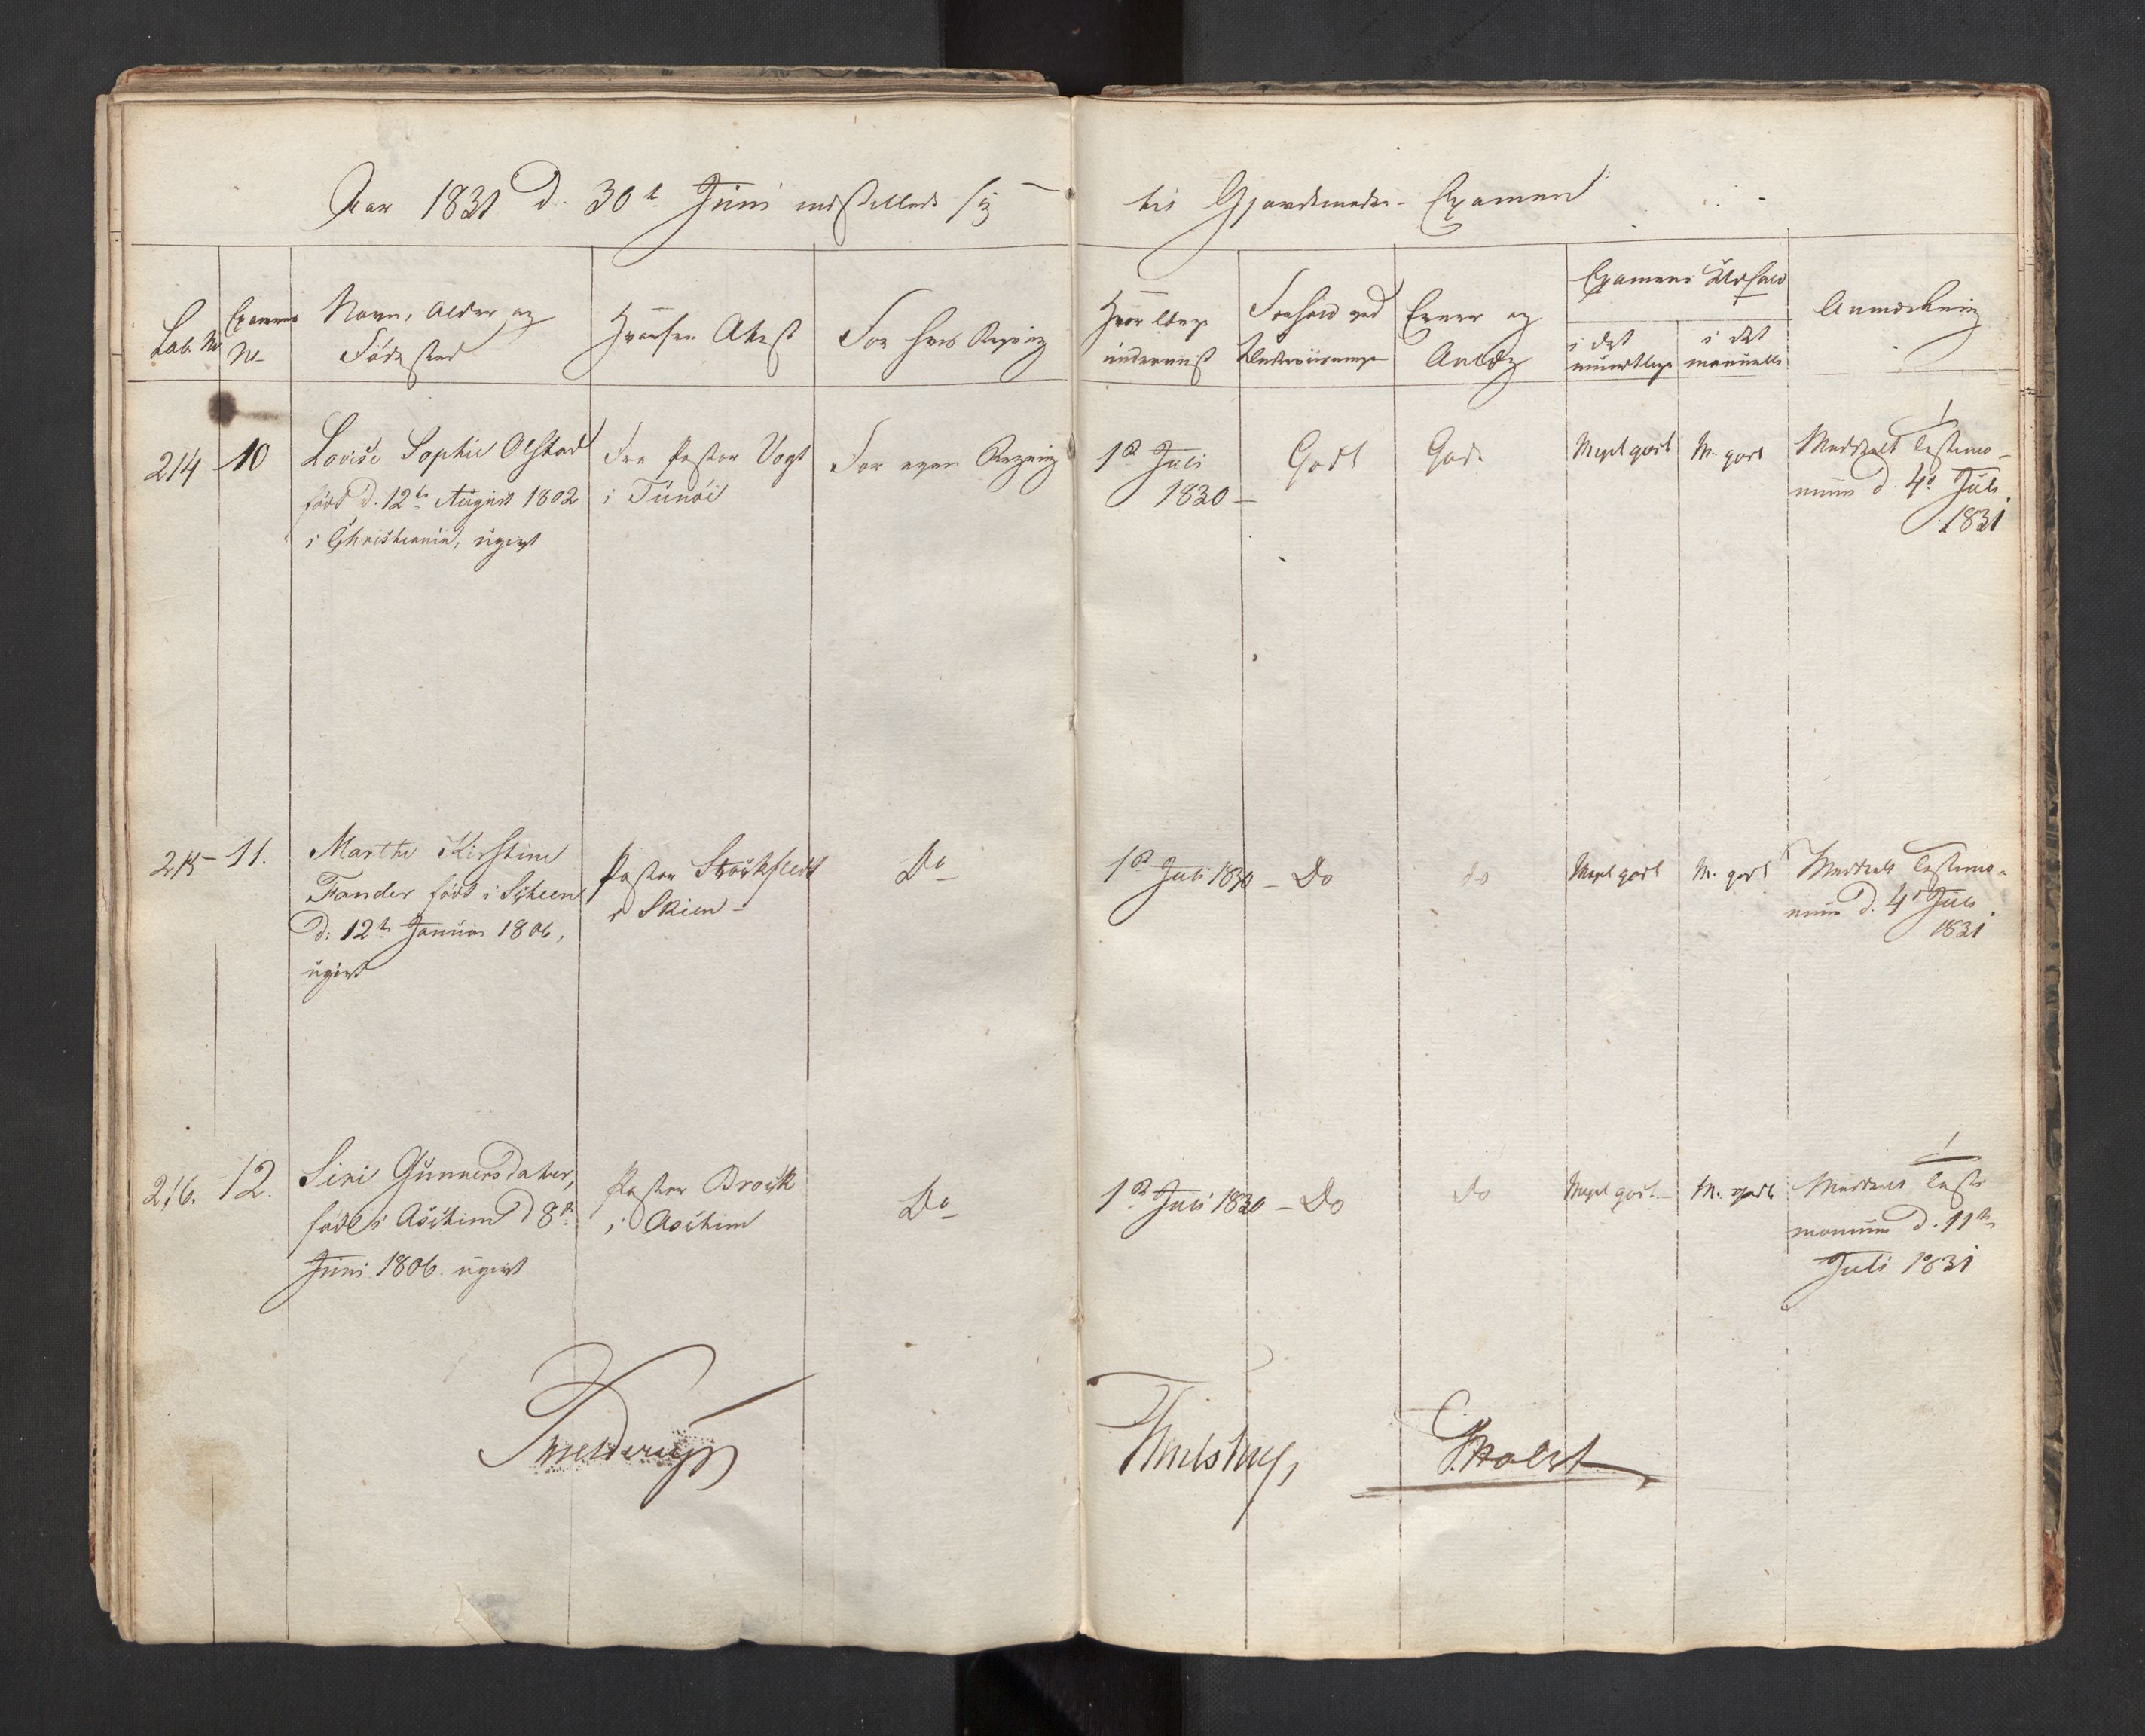 Aar 1831 d. 30te Juni indstillede sig til Gjordemoder-Examen
Lab. No
Examens No
Navn, Alder og Fødested
Hvorfra Attest
For hvis Regning
Hvor længe underviist
Forhold ved Underviisningen
Evner og Anlæg
Examens Udfald
i det mundtlige
i det manuelle
Anmærkning
214
10
Lovise Sophie Olstad
född d. 12te August 1802
i Christiania, ugivt
Fra Pastor Vogt
i
For egen Regning
1d Juli
1830 –
Godt
God.
Meget godt
M. godt
Meddeelt Testimo-
nium d. 4de Juli
1831
215
11.
Marthe Kirstine
Fander född i Scheen
d: 12te Januar 1806,
ugivt
Pastor Stockfledt
i Skien –
Do
1d Juli 1830 –
Do
do
Meget godt
M. godt
Meddeelt Testimo-
nium d. 4de Juli
1831
216.
12.
Siri Gunnersdatter,
född i Aschim d 8d
Juni 1806. ugivt
Pastor Brock
i Aschim
Do
1d Juli 1830 –
Do
do
Meget godt –
M. godt
Meddeelt Testi
monium d. 11te
Juli 1831
Thulstrup,
Holst